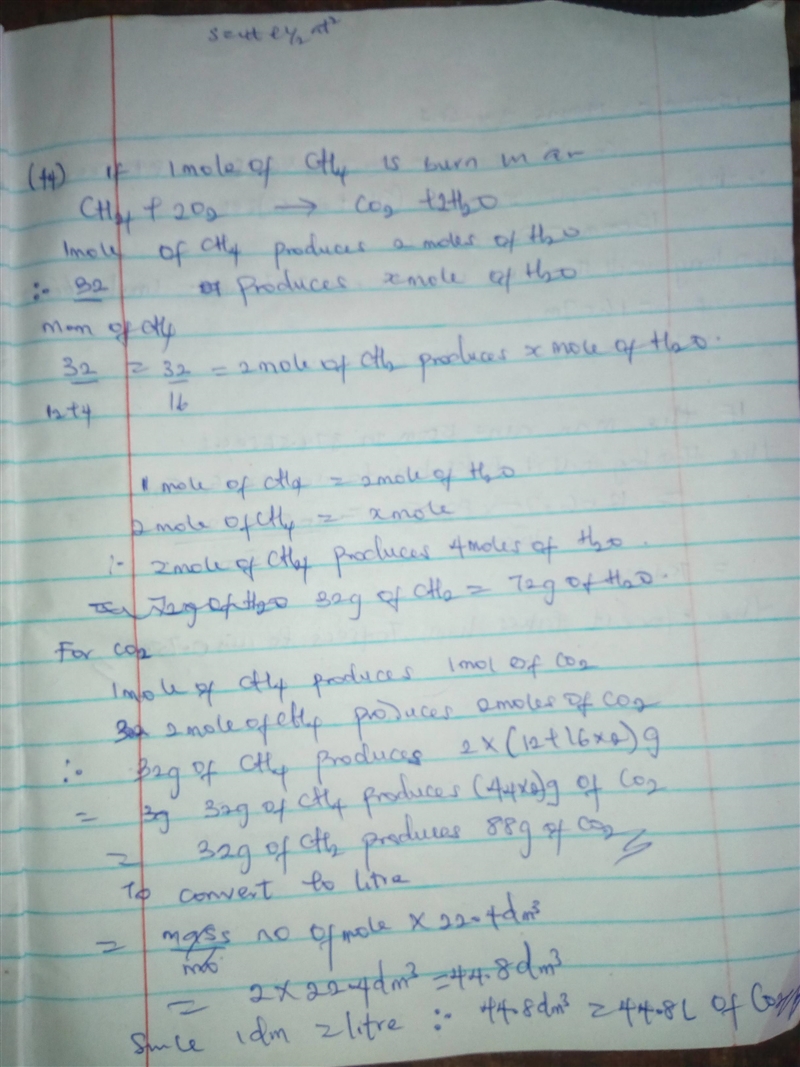 (14) If 1mole of CH4 is burn in
CH4 + 2O2 → CO2 + 2H2O
1mole of CH4 produces 2 moles of H2O
∴ 32 produces x mole of H2O
m.m of CH4
32 = 32 = 2mole of CH2 produces x mole of H2O.
12+4 16
1 mole of CH4 = 2mole of H2O
2 mole of CH4 = x mole
∴ 2mole of CH4 produces 4moles of H2O.
72g of H2O 32g of CH2 = 72g of H2O.
For CO2
1mole of CH4 produces 1mol of CO2
32 2mole of CH4 produces 2moles of CO2
∴ 32g of CH4 produces 2×(12+16×2)g
= 3g 32g of CH4 produces (44×2)g of CO2
= 32g of CH2 produces 88g of CO2
To convert to litre
= mass no of mole × 22.4dm³
= 2×22.4dm³ = 44.8dm³
Since 1dm = litre ∴ 44.8dm³ = 44.8L of CO2